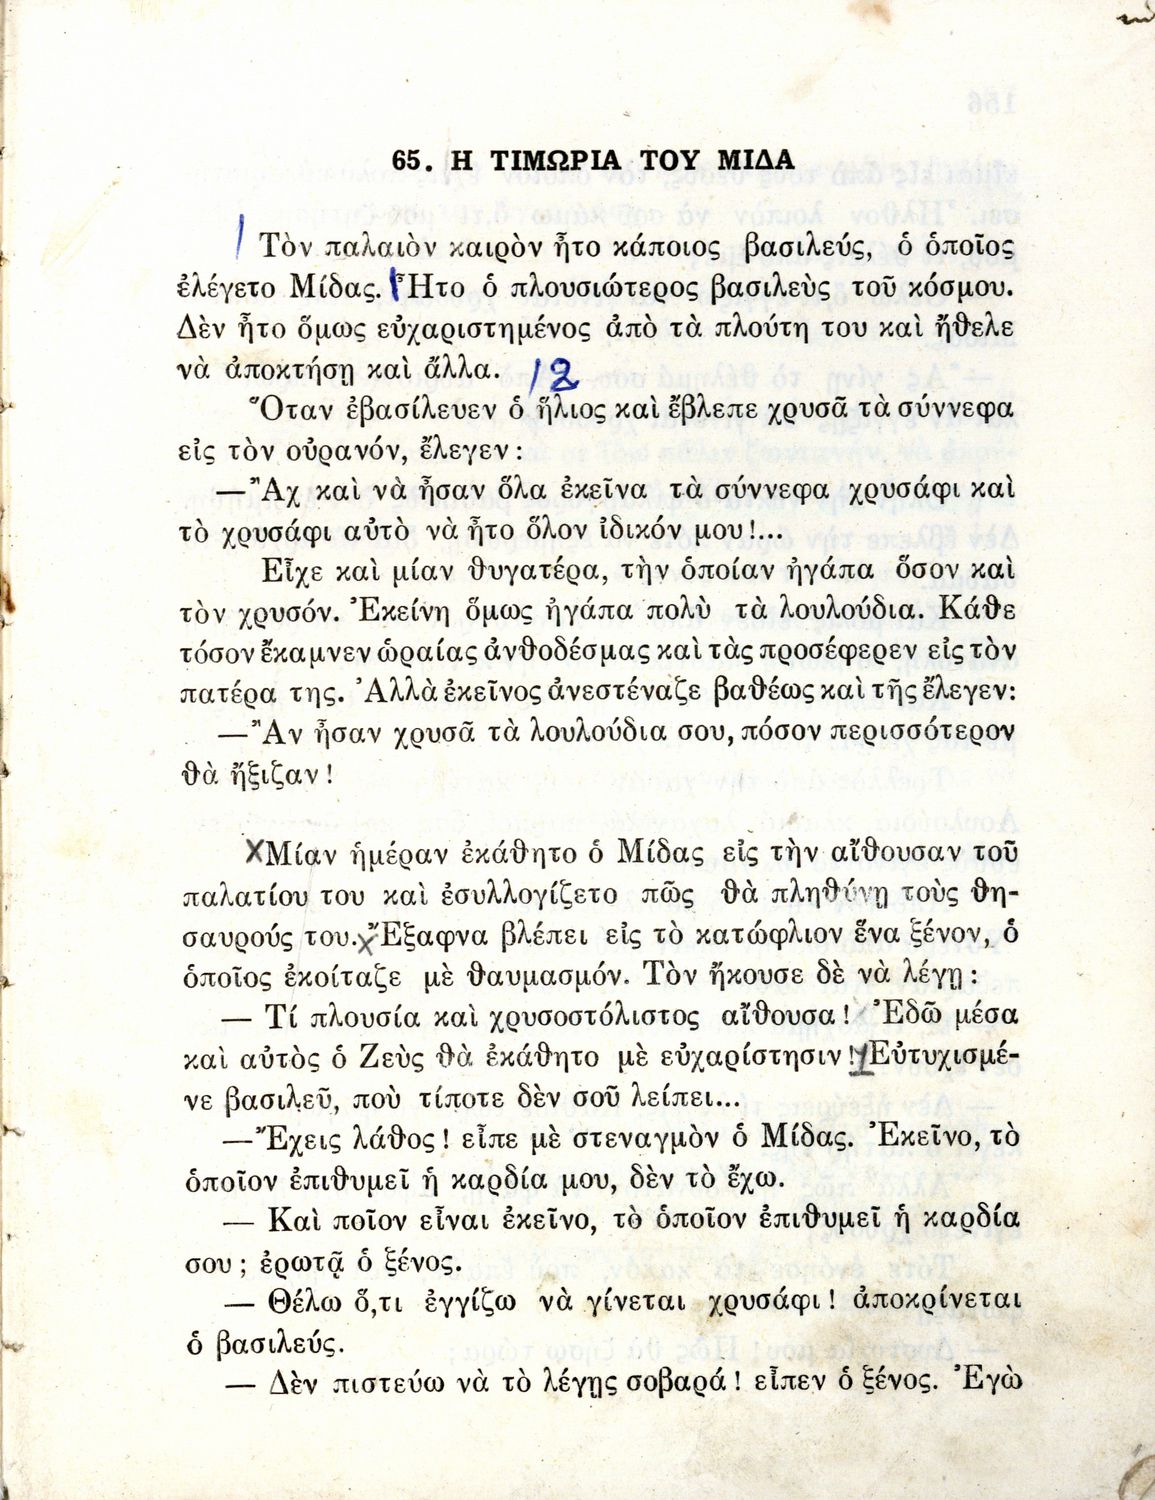 65. Η ΤΙΜΩΡΙΑ ΤΟΥ ΜΙΔΑ
Τὸν παλαιὸν καιρὸν ἦτο κάποιος βασιλεύς, ὁ ὁποῖος
ἐλέγετο Μίδας. Ἦτο ὁ πλουσιώτερος βασιλεὺς τοῦ κόσμου.
Δὲν ἦτο ὅμως εὐχαριστημένος ἀπὸ τὰ πλούτη του καὶ ἤθελε
νὰ ἀποκτήσῃ καὶ ἄλλα. / 2
Ὅταν ἐβασίλευεν ὁ ἥλιος καὶ ἔβλεπε χρυσᾶ τὰ σύννεφα
εἰς τὸν οὐρανόν, ἔλεγεν :
—Ἂχ καὶ νὰ ἦσαν ὅλα ἐκεῖνα τὰ σύννεφα χρυσάφι καὶ
τὸ χρυσάφι αὐτὸ νὰ ἦτο ὅλον ἰδικόν μου !...
Εἶχε καὶ μίαν θυγατέρα, τὴν ὁποίαν ἠγάπα ὅσον καὶ
τὸν χρυσόν. Ἐκείνη ὅμως ἠγάπα πολὺ τὰ λουλούδια. Κάθε
τόσον ἔκαμνεν ὡραίας ἀνθοδέσμας καὶ τὰς προσέφερεν εἰς τὸν
πατέρα της. Ἀλλὰ ἐκεῖνος ἀνεστέναζε βαθέως καὶ τῆς ἔλεγεν:
—Ἂν ἦσαν χρυσᾶ τὰ λουλούδια σου, πόσον περισσότερον
θὰ ἤξιζαν !
Μίαν ἡμέραν ἐκάθητο ὁ Μίδας εἰς τὴν αἴθουσαν τοῦ
παλατίου του καὶ ἐσυλλογίζετο πῶς θὰ πληθύνῃ τοὺς θη-
σαυρούς του. Ἔξαφνα βλέπει εἰς τὸ κατώφλιον ἕνα ξένον, ὁ
ὁποῖος ἐκοίταζε μὲ θαυμασμόν. Τὸν ἤκουσε δὲ νὰ λέγῃ :
— Τί πλουσία καὶ χρυσοστόλιστος αἴθουσα ! Ἐδῶ μέσα
καὶ αὐτὸς ὁ Ζεὺς θὰ ἐκάθητο μὲ εὐχαρίστησιν ! Εὐτυχισμέ-
νε βασιλεῦ, ποὺ τίποτε δὲν σοῦ λείπει...
—Ἔχεις λάθος ! εἶπε μὲ στεναγμὸν ὁ Μίδας. Ἐκεῖνο, τὸ
ὁποῖον ἐπιθυμεῖ ἡ καρδία μου, δὲν τὸ ἔχω.
— Καὶ ποῖον εἶναι ἐκεῖνο, τὸ ὁποῖον ἐπιθυμεῖ ἡ καρδία
σου ; ἐρωτᾷ ὁ ξένος.
— Θέλω ὅ,τι ἐγγίζω νὰ γίνεται χρυσάφι ! ἀποκρίνεται
ὁ βασιλεύς.
— Δὲν πιστεύω νὰ τὸ λέγῃς σοβαρά ! εἶπεν ὁ ξένος. Ἐγὼ